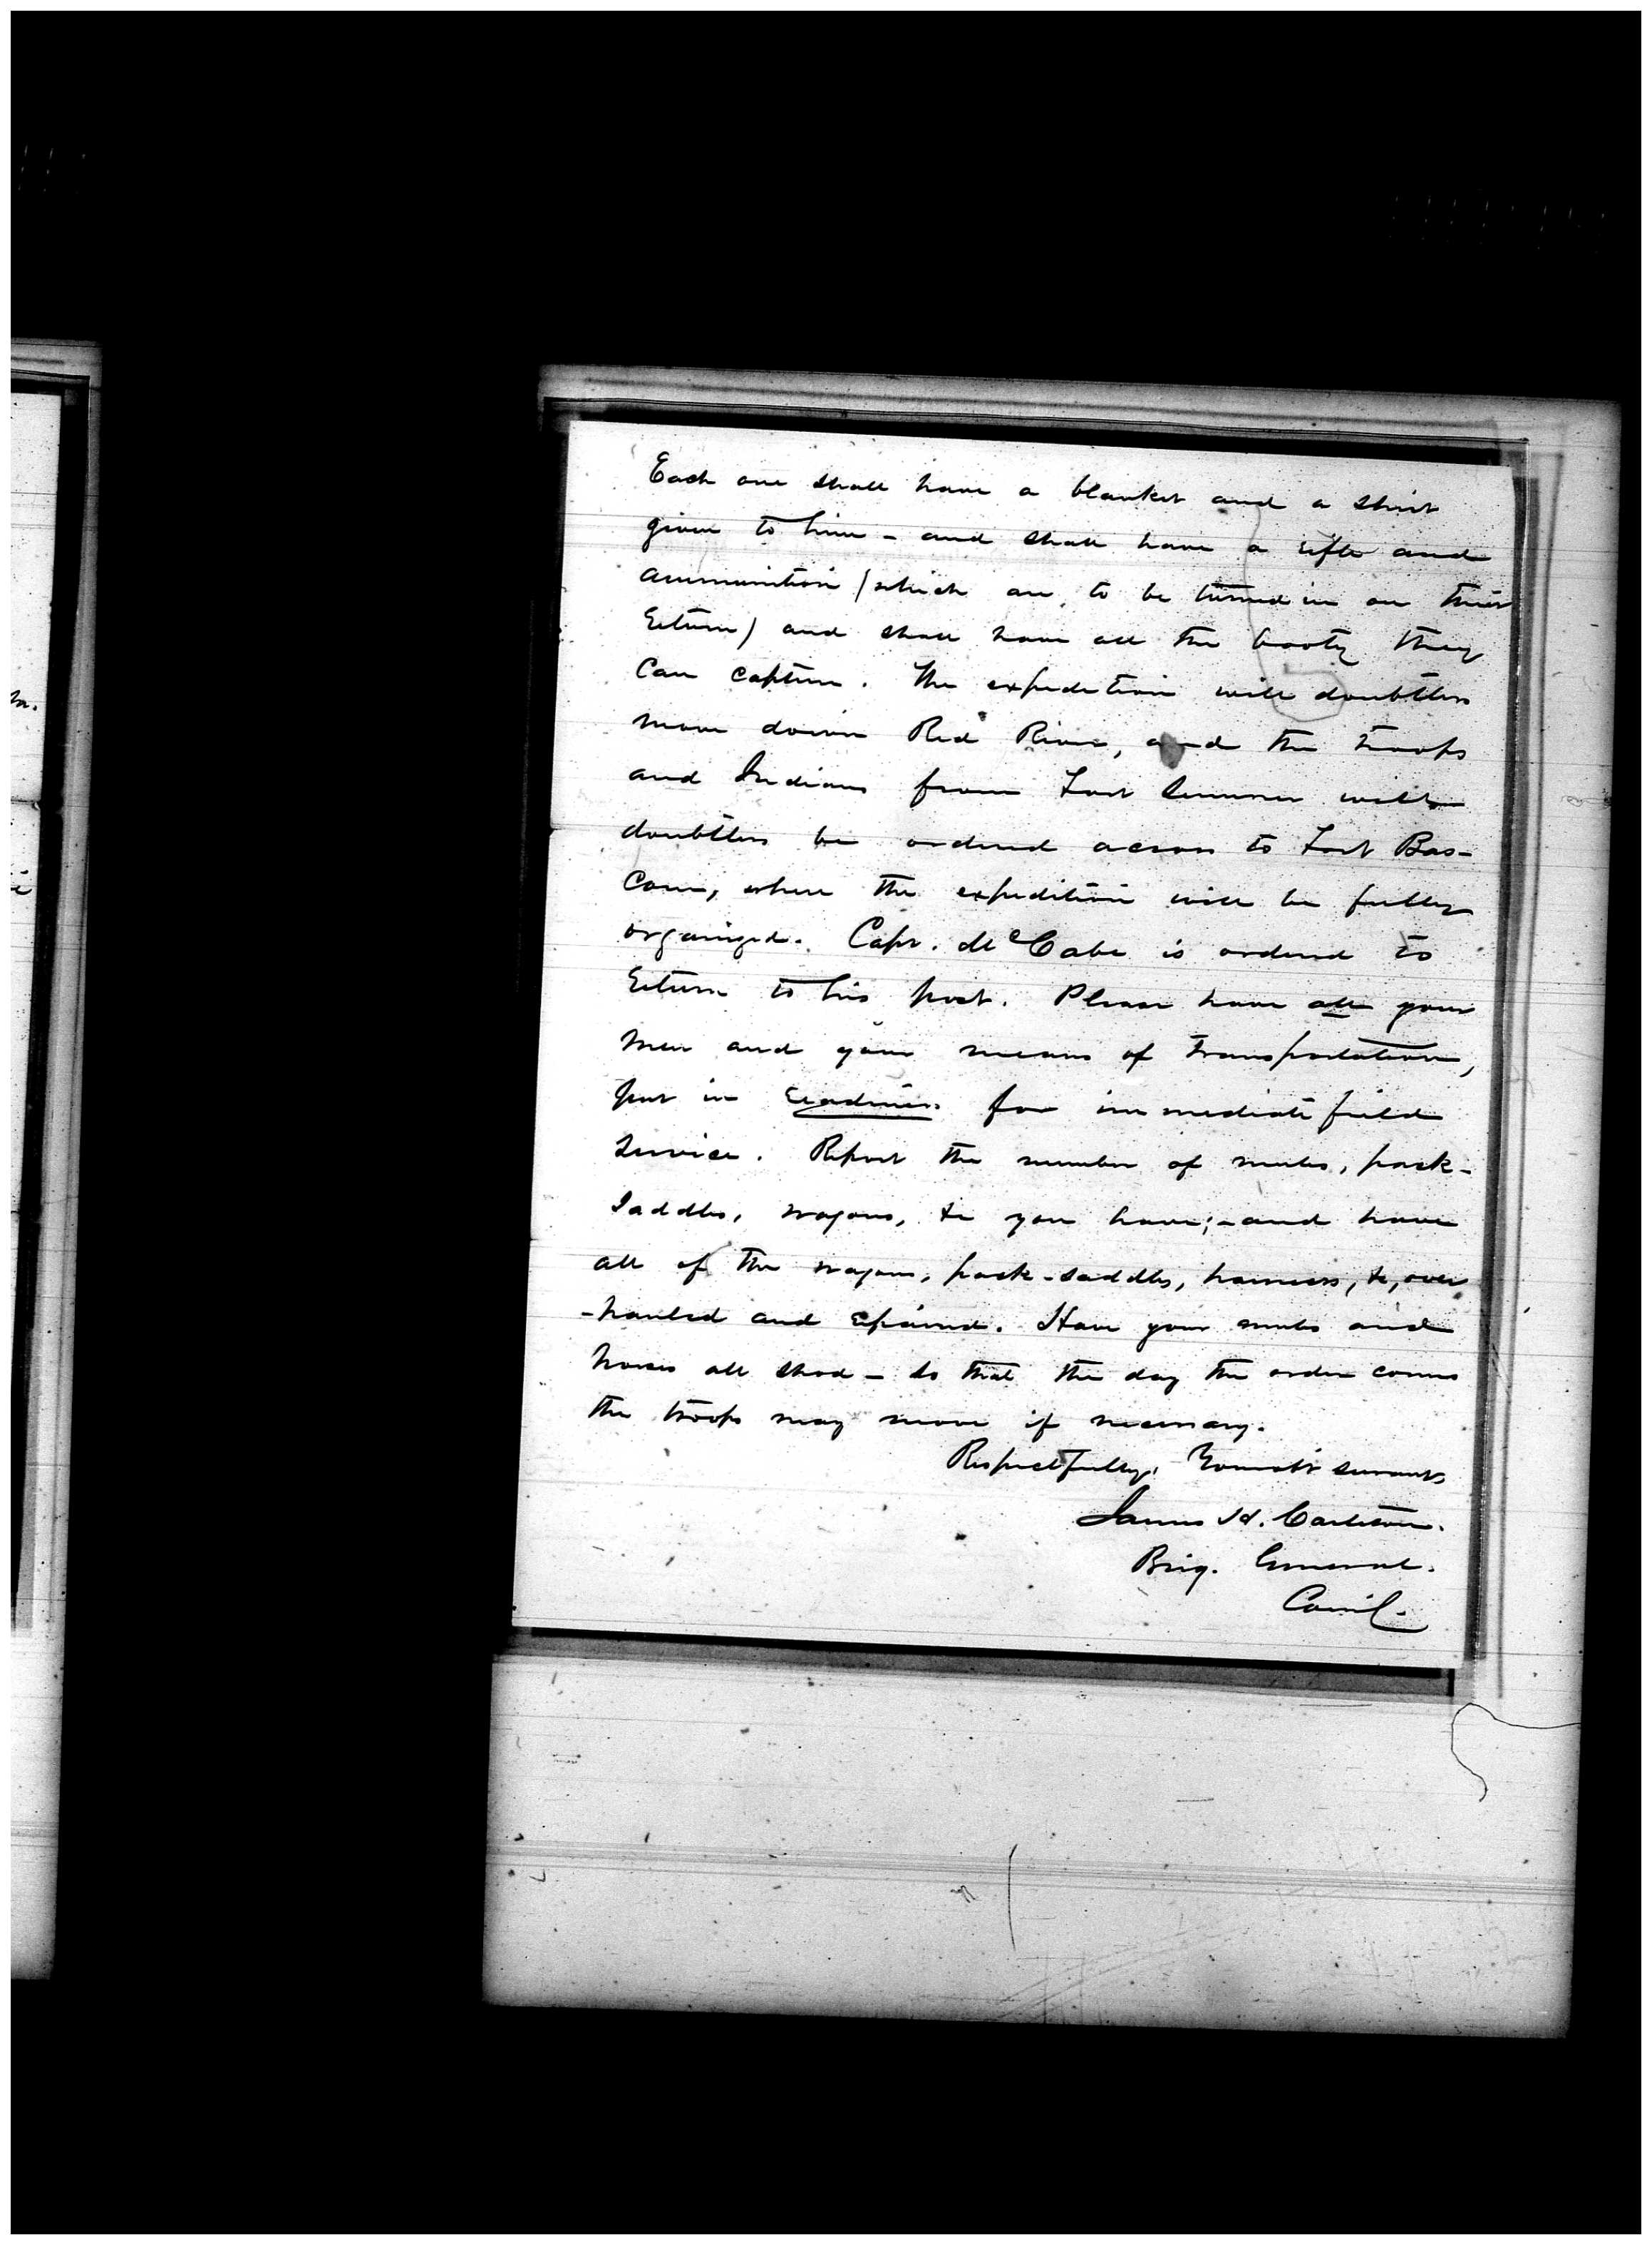 Each one shall have a blanket and a shirt
given to him – and shall have a rifle and
ammunition (which are to be turned in on their
return) and shall have all the booty they
can capture. The expedition will doubtless
move down Red River, and the troops
and Indians from Fort Sumner will
doubtless be ordered across to Fort Bas-
com, where the expedition will be fully
organized. Capt. McCabe is ordered to
return to his post. Please have all your
men and your means of transportation,
put in readiness for immediate field
service. Report the number of mules, pack-
saddles, wagons, &c you have; – and have
all of the wagons, pack-saddles, harness, &c, over
-hauled and repaired. Have your mules and
horses all shod – so that the day the order comes
the troops may move if necessary.
Respectfully, Your obt servant,
James H. Carleton.
Brig. General.
Com'd.